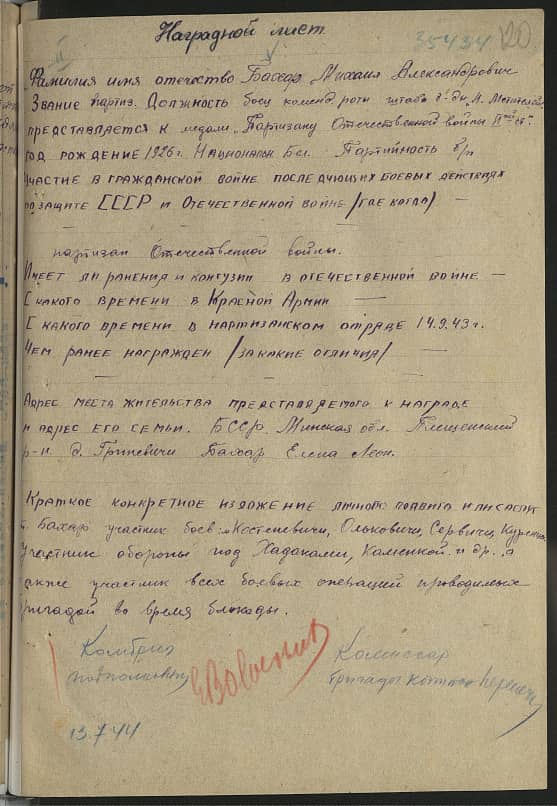 Наградной лист
35434 20
II
Фамилия имя отчество Бахар Михаил Александрович
Звание партиз. Должность боец коменд роты штаба
представляется к медали „Партизану Отечественной войны II ой ст"
год рождение 1926 г. Национальн Бел. Партийность б/п
Участие в гражданской войне последующих боевых действях
по защите СССР и Отечественной войне /где когда/ —
партизан Отечественной войны.
Имеет ли ранения и контузии в отечественной войне —
С какого времени в Красной Армии —
С какого времени в партизанском отряде 14.9.43 г.
Чем ранее награжден /за какие отличия/ —
Адрес места жительства представляемого к награде
и адрес его семьи. БССР Минская обл. Плещенский
р-н д. Бахар Елена Леон.
Краткое конкретное изложение личного подвига или заслуг
т. Бахар участник боев: Костеневичи, Ольковичи, Сервичи,
участник обороны под Хадаками, Каменкой и др., а
акже участник всех боевых операций проводимых
ригадой во время блокады.
Комбриг Комиссар
подполковник бригады
13.7.44